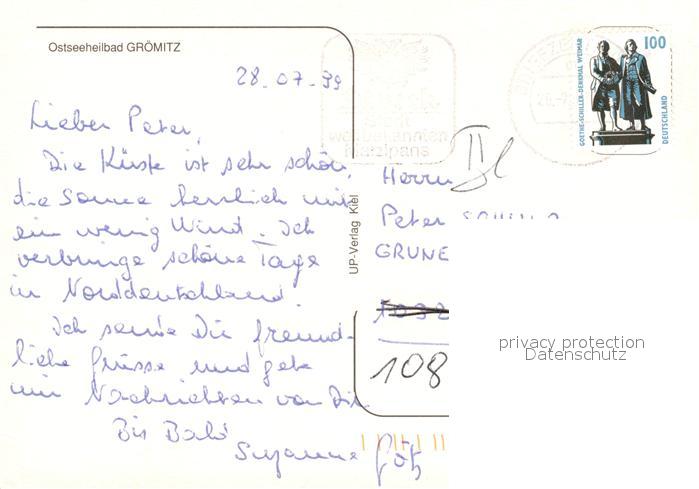 Ostseeheilbad GRÖMITZ
28.07.99
Lieber Peter,
Die Küste ist sehr schön,
die Sonne herrlich und
ein wenig Wind. Ich
verbringe schöne Tage
in Norddeutschland.
Ich sende Dir freund-
liche Grüsse und gebe
mir Nachrichten von Dir
Bis Bald
Susanne
UP-Verlag Kiel
weltbekannten
Marzipans
100
GOETHE-SCHILLER-DENKMAL WEIMAR
DEUTSCHLAND
Herrn
Peter
GRUNE
108
privacy protection
Datenschutz